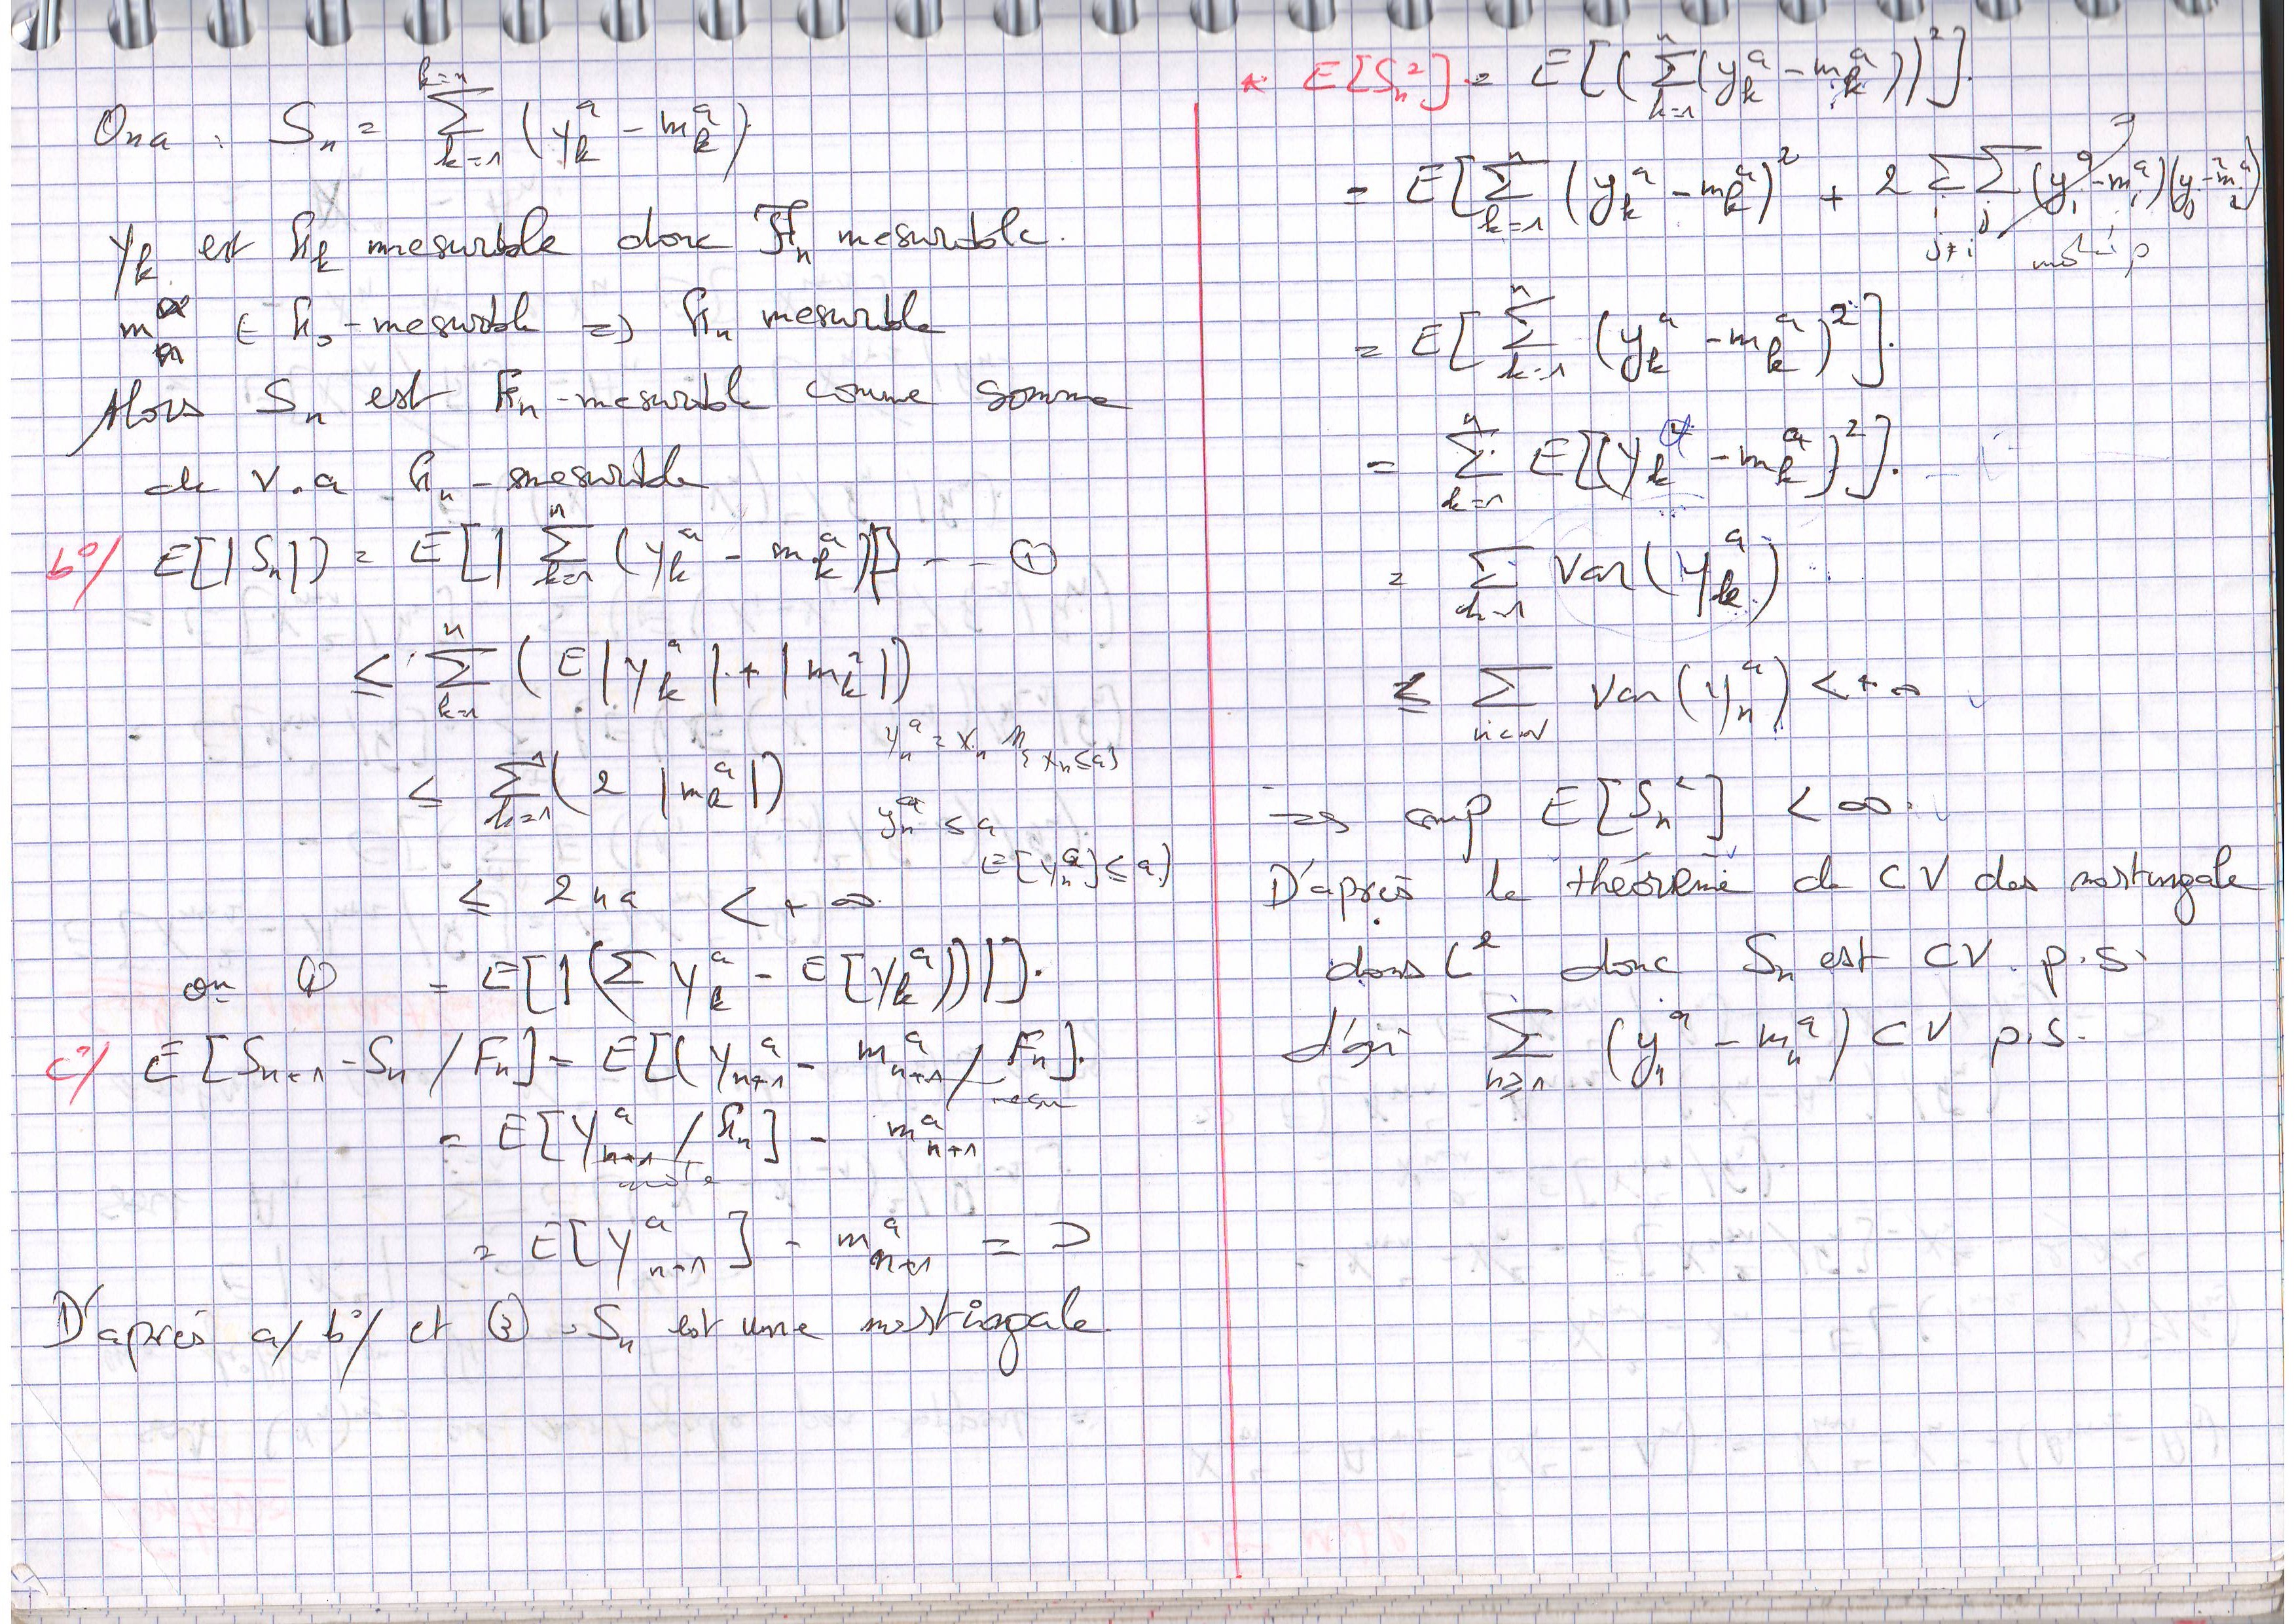 On a : S_n = \sum_{k=1}^{k=n} (y_k^a - m_k^a)
y_k est F_k mesurable donc F_n mesurable.
m_n^a F_0-mesurable => F_n mesurable
Alors S_n est F_n-mesurable comme somme
de v.a F_n-mesurable
b°/ E[|S_n|] = E[| \sum_{k=1}^{n} (y_k^a - m_k^a)|] -- ①
≤ \sum_{k=1}^{n} (E|y_k^a| + |m_k^a|)
y_n^a = x_n 1_{\{x_n ≤ a\}}
≤ \sum_{k=1}^{n} (2 |m_k^a|)
y_n^a ≤ a
E[y_n^a] ≤ a)
≤ 2na < +∞.
on ① = E[|(\sum y_k^a - E[y_k^a])|].
c°/ E[S_{n+1} - S_n / F_n] = E[(y_{n+1}^a - m_{n+1}^a / F_n].
= E[y_{n+1}^a / F_n] - m_{n+1}^a
= E[y_{n+1}^a] - m_{n+1}^a = 0
D'après a/ b°/ et ③, S_n est une martingale
* E[S_n^2] = E[(\sum_{k=1}^{n} (y_k^a - m_k^a))^2].
= E[\sum_{k=1}^{n} (y_k^a - m_k^a)^2 + 2 \sum_i \sum_{j≠i} (y_i^a - m_i^a)(y_j^a - m_j^a)
= E[\sum_{k=1}^{n} (y_k^a - m_k^a)^2].
= \sum_{k=1}^{n} E[(y_k^a - m_k^a)^2].
= \sum_{k=1} Var(y_k^a)
≤ \sum_{n∈N} Var(y_n^a) < +∞
=> sup E[S_n^2] < ∞.
D'après le théorème de CV des martingale
dans L^2 donc S_n est CV p.s.
d'où \sum_{n≥1} (y_n^a - m_n^a) CV p.s.